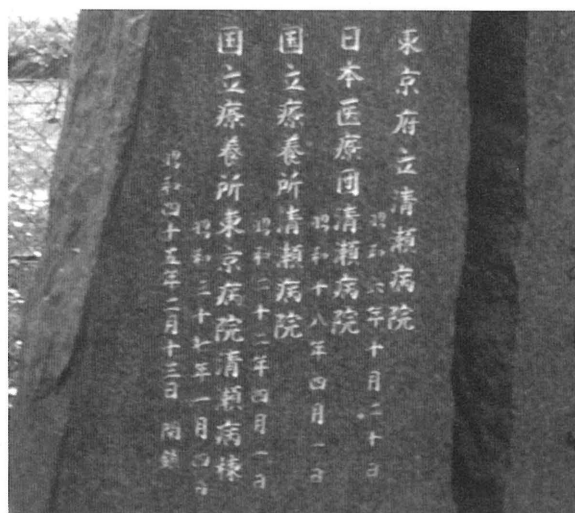 東京府立清瀬病院
昭和六年十月二十日
日本医療団清瀬病院
昭和十八年四月一日
国立療養所清瀬病院
昭和二十二年四月一日
国立療養所東京病院清瀬病棟
昭和三十七年一月四日
昭和四十五年二月十三日 閉鎖